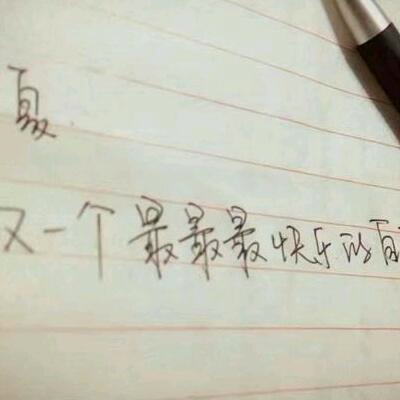 夏
又一个最最最快乐的夏